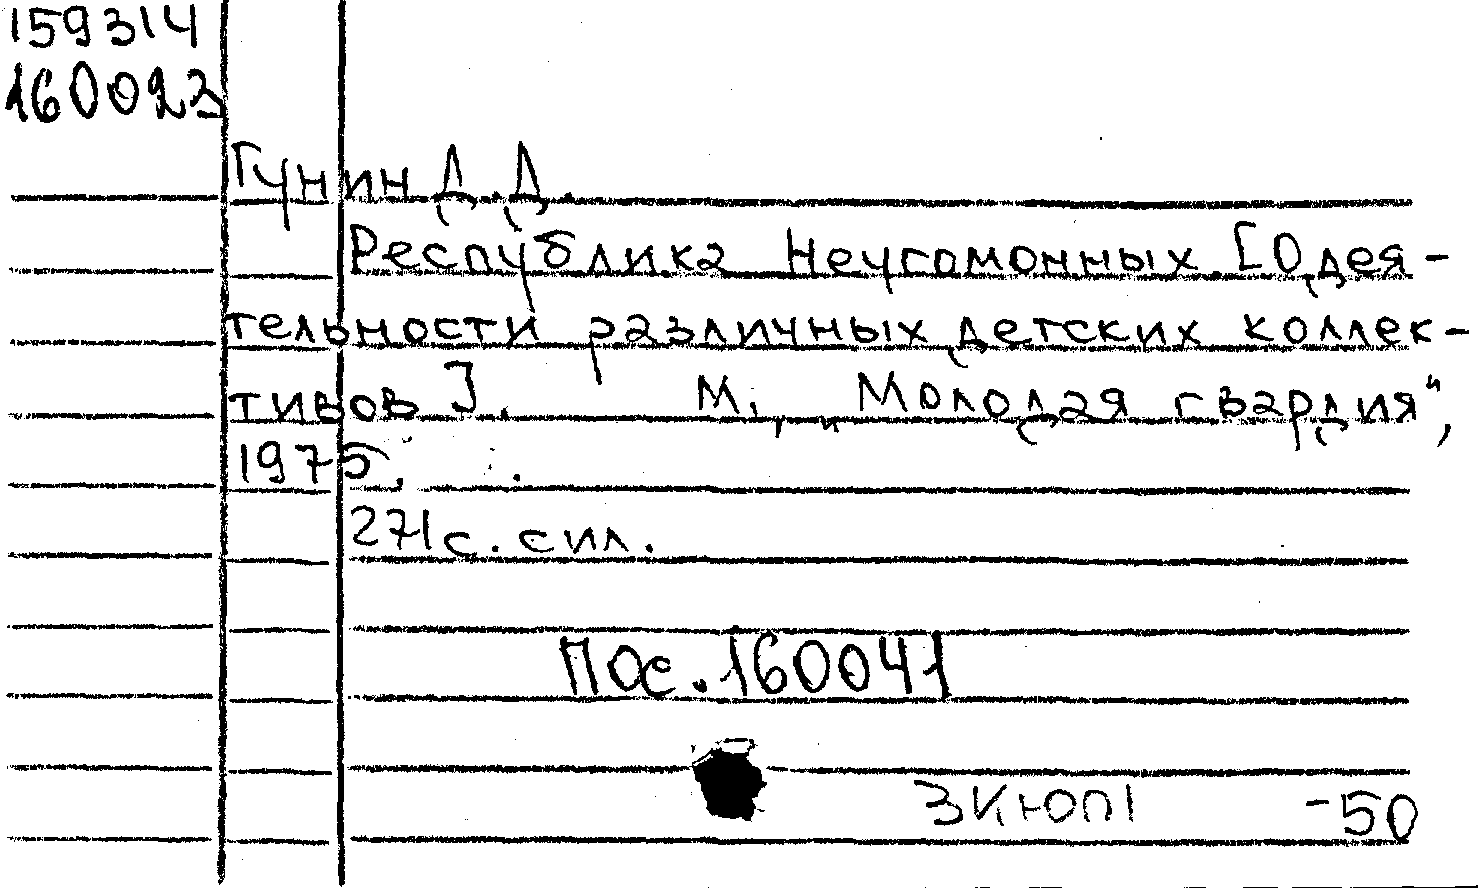 159314
160023
Гунин Д.Д.
Республика Неугомонных [О дея-
тельности различных детских коллек-
тивов]. М., „Молодая гвардия“,
1975.
271с. сил.
Пос. 160041
-50